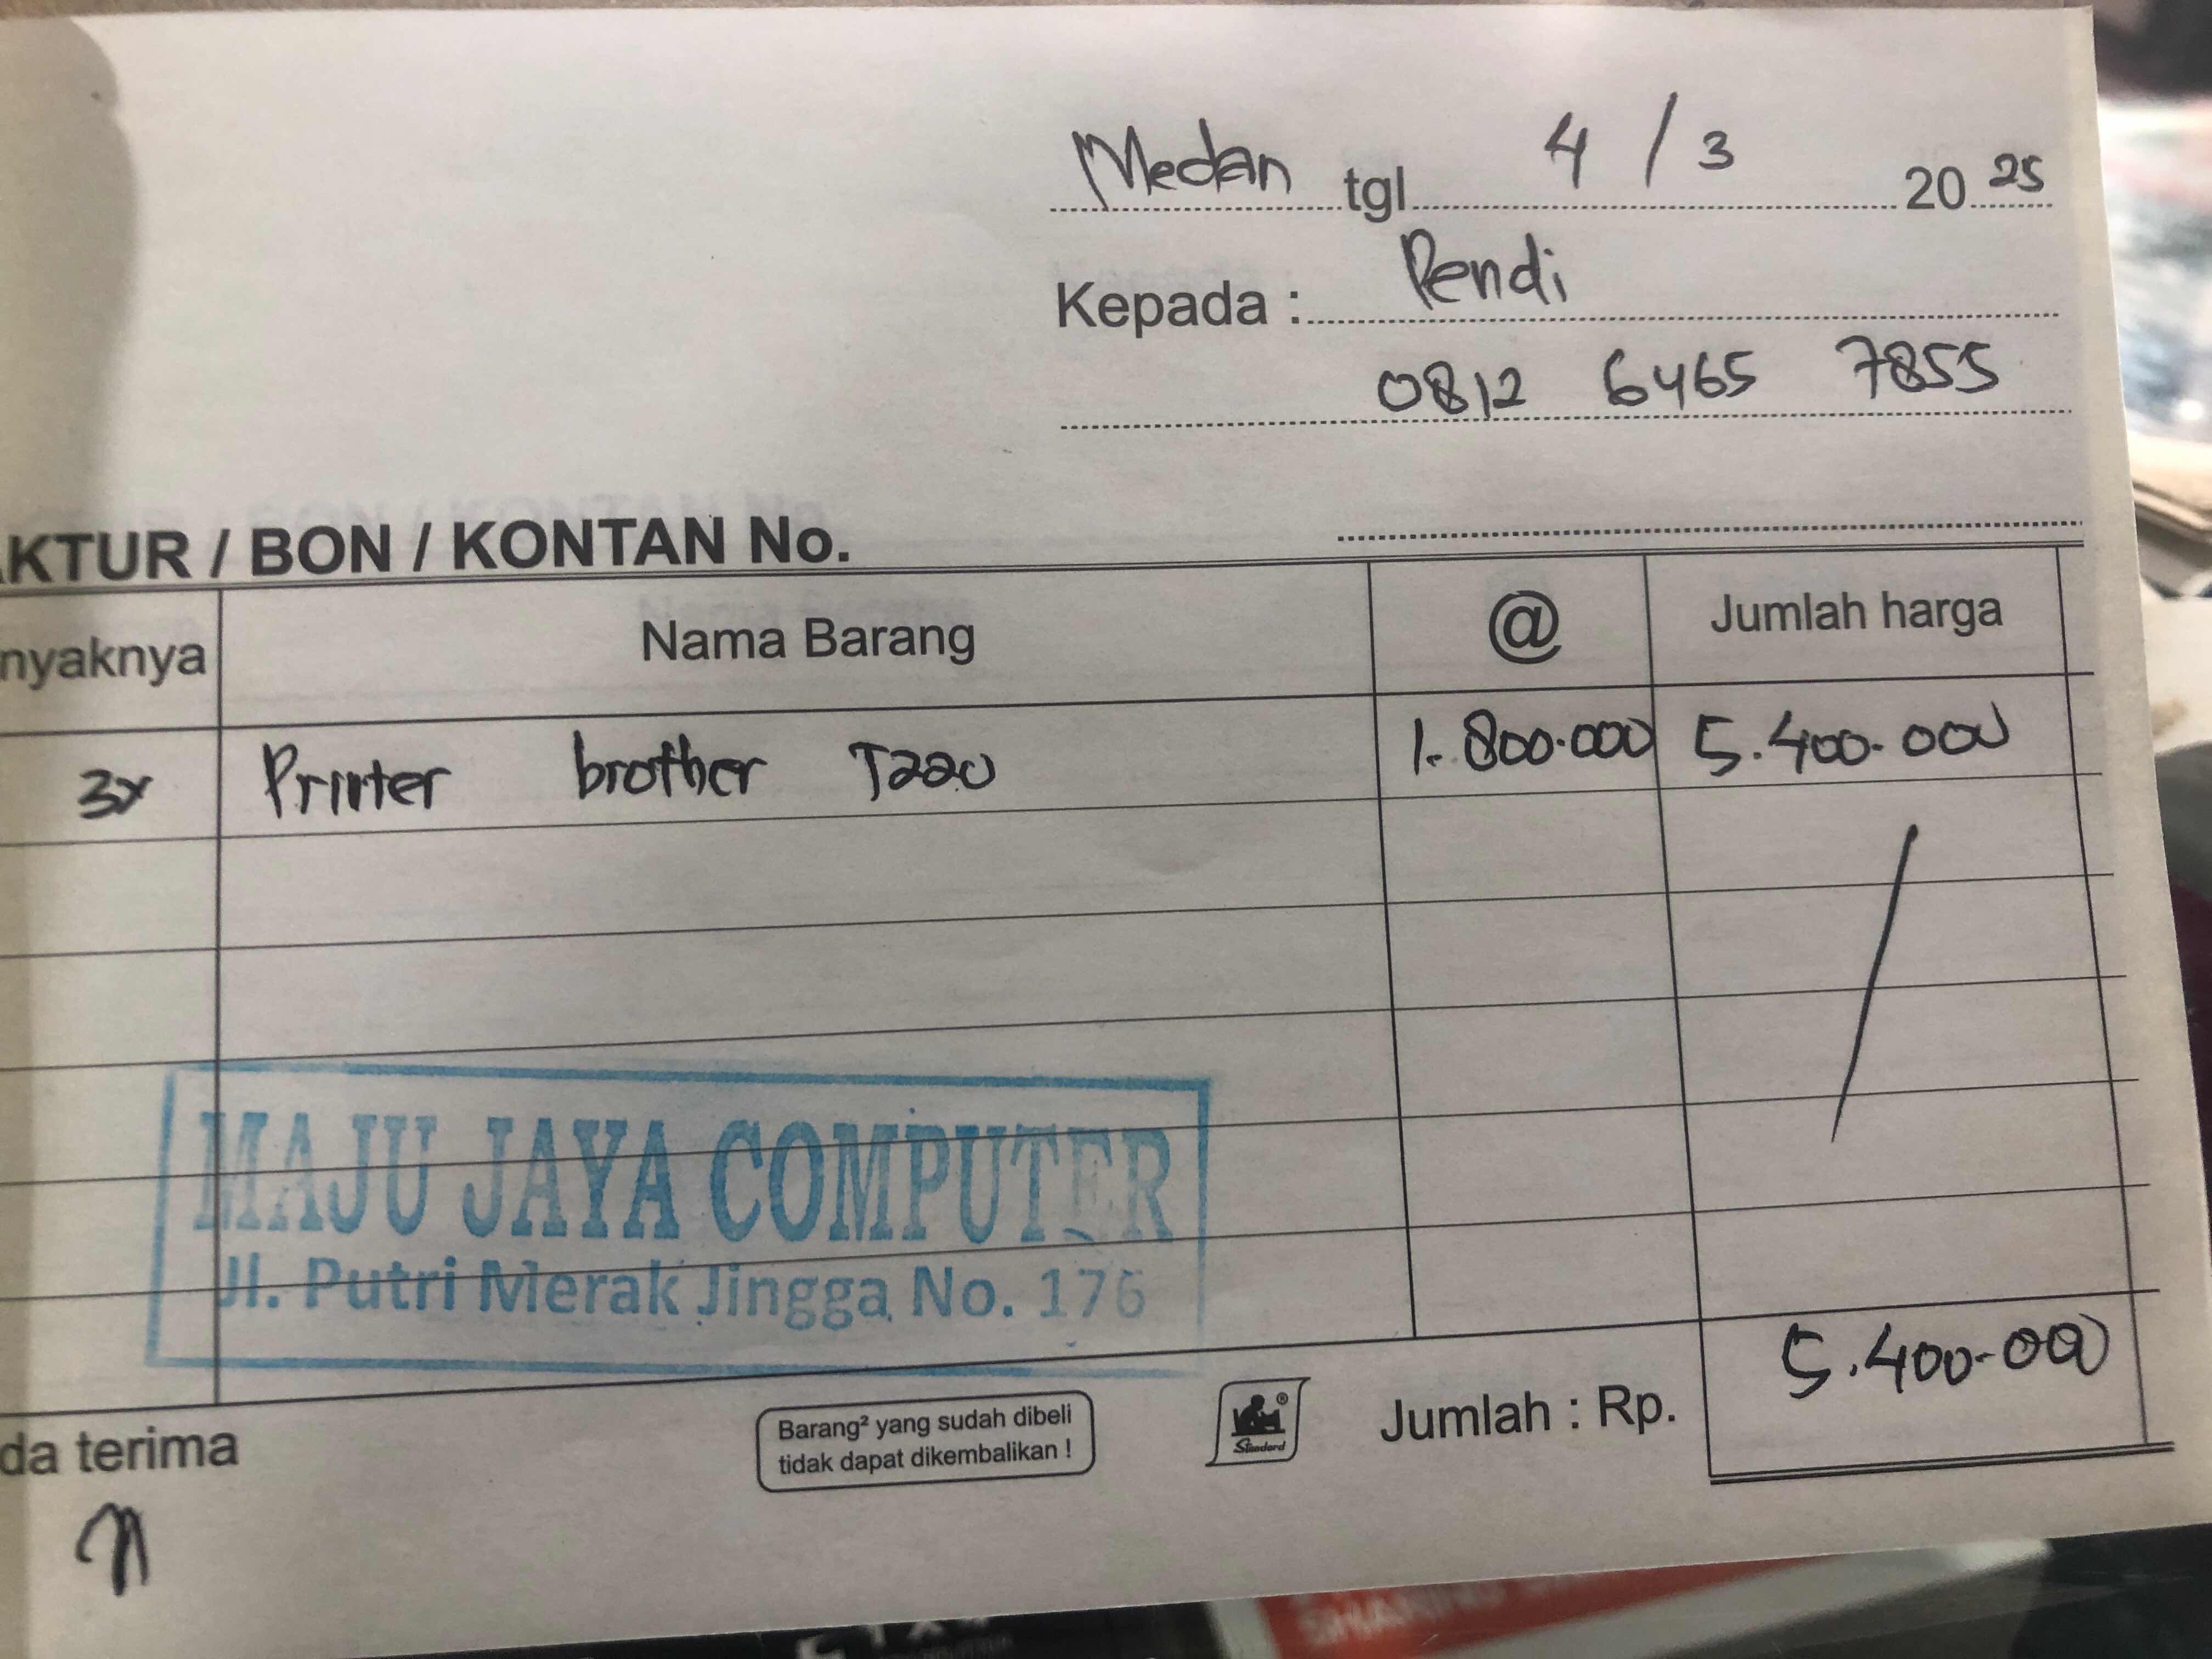 Medan tgl 4 / 3 20 25
Kepada : Pendi
0812 6465 7855
AKTUR / BON / KONTAN No.
nyaknya Nama Barang @ Jumlah harga
3x Printer brother T220 1.800.000 5.400.000
MAJU JAYA COMPUTER
Jl. Putri Merak Jingga No. 176
da terima
Barang² yang sudah dibeli
tidak dapat dikembalikan !
Standard
Jumlah : Rp. 5.400.000